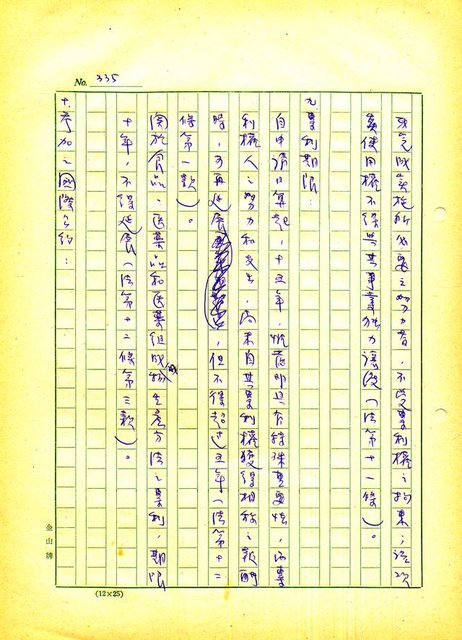 No. 335
已完成實施所必要之努力者，不受專利權之拘束；該項
實使用權不得與其事業獨力讓渡（法第十一條）。
九、專利期限：
自申請日算起，十五年，惟若即具有特殊重要性，而專
利權人之努力和支出，尚未自其專利權獲得相稱之報酬
時，可再延展，但不得超過五年（法第十二
條第一款）。
關於食品、醫藥品和醫藥組成物的生產方法之專利，期限
十年，不得延展（法第十二條第三款）。
十、參加之國際公約：
金山牌
(12×25)